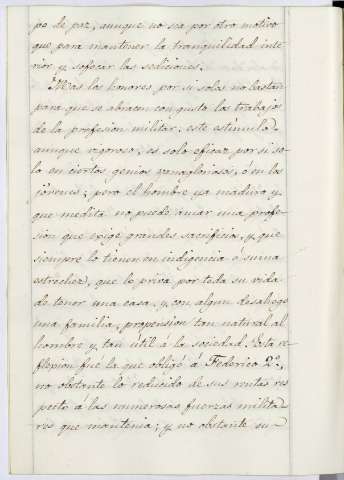 po de paz, aunque no sea por otro motivo
que para mantener la tranquilidad inte
rior y sofocar las sediciones.
Mas los honores por si solos no bastan
para que se abracen con gusto los trabajos
de la profesion militar: este estimulo
aunque vigoroso, es solo eficaz por si so
lo en ciertos genios vanagloriosos, ó en los
jóvenes; pero el hombre ya maduro y
que medita no puede amar una profe-
sion que exige grandes sacrificios, y que
siempre lo tienen en indigencia ó suma
estrechez, que le priva por toda su vida
de tener una casa, y con algun desahogo
una familia, propension tan natural al
hombre y tan útil á la sociedad. Esta re
flexion fué la que obligó á Federico 2º.,
no obstante lo reducido de sus rentas res
pecto á las numerosas fuerzas milita-
res que mantenia; y no obstante su-